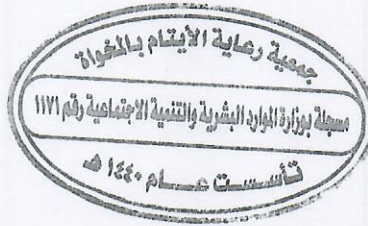 جمعية رعاية الأيتام بالمخواة
مسجلة بوزارة الموارد البشرية والتنمية الاجتماعية رقم ١١٧١
تأسست عـــام ١٤٤٠ هـ